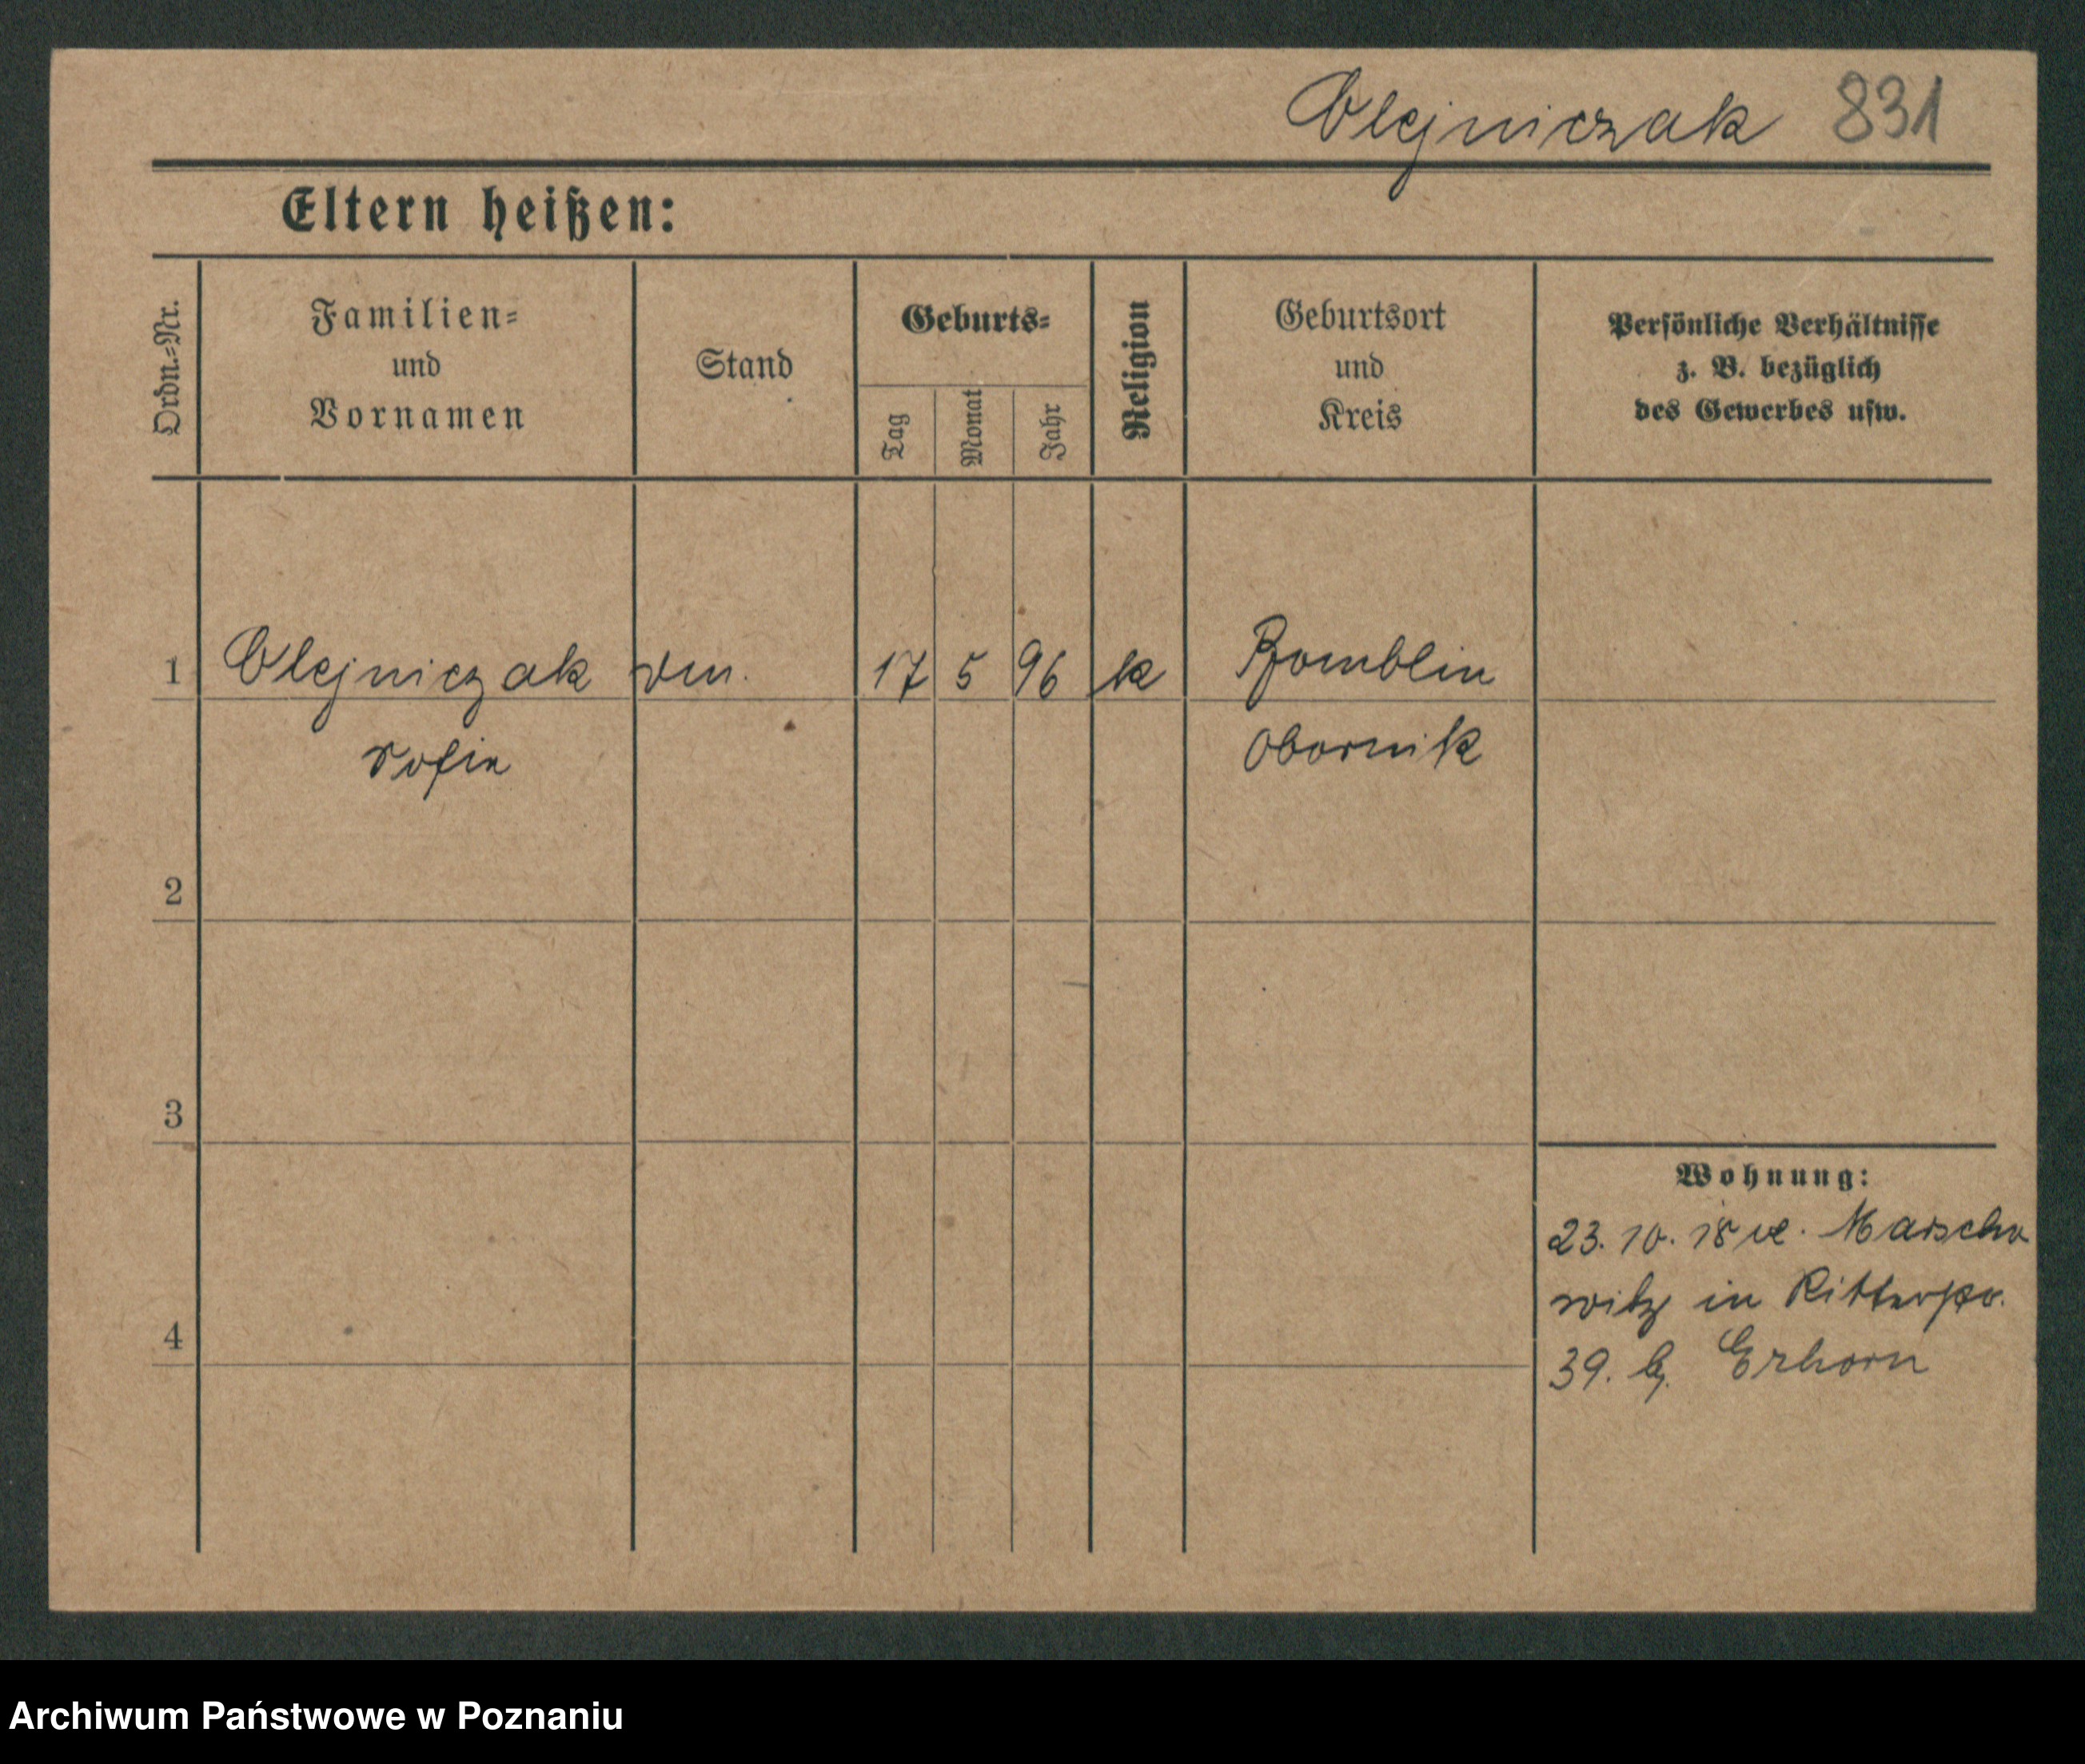 Olejniczak 831
Eltern heißen:
Ordn.=Nr.
Familien=
und
Vornamen
Stand
Geburts=
Tag
Monat
Jahr
Religion
Geburtsort
und
Kreis
Persönliche Verhältnisse
z. B. bezüglich
des Gewerbes usw.
1 Olejniczak 17 5 96 k
Sofie Obornik
2
3
4
Wohnung:
23. 10. 18
witz in Ritterstr.
39. b. Erhorn
Archiwum Państwowe w Poznaniu